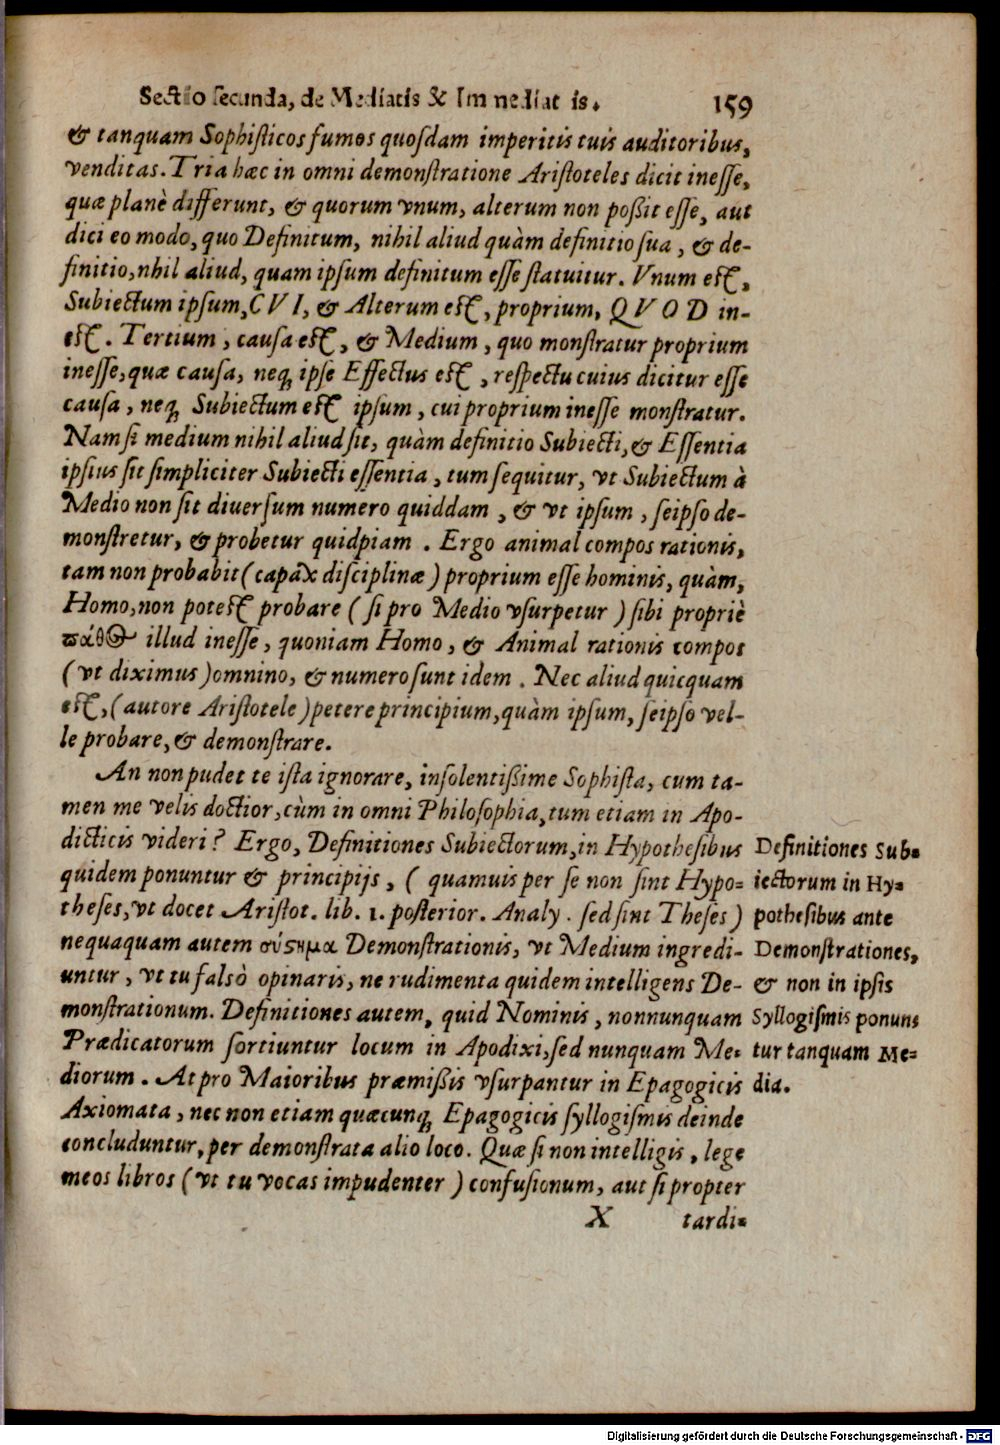 Sectio secunda, de Mediatis & Immediatis. 159
& tanquam Sophisticos fumos quosdam imperitis tuis auditoribus,
venditas. Tria hæc in omni demonstratione Aristoteles dicit inesse,
quæ planè differunt, & quorum vnum, alterum non poßit esse, aut
dici eo modo, quo Definitum, nihil aliud quàm definitio sua, & de-
finitio, nhil aliud, quam ipsum definitum esse statuitur. Vnum est,
Subiectum ipsum, CVI, & Alterum est, proprium, QVOD in-
est. Tertium, causa est, & Medium, quo monstratur proprium
inesse, quæ causa, neq; ipse Effectus est, respectu cuius dicitur esse
causa, neq; Subiectum est ipsum, cui proprium inesse monstratur.
Nam si medium nihil aliud sit, quàm definitio Subiecti, & Essentia
ipsius sit simpliciter Subiecti essentia, tum sequitur, vt Subiectum à
Medio non sit diversum numero quiddam, & vt ipsum, seipso de-
monstretur, & probetur quidpiam. Ergo animal compos rationis,
tam non probabit (capax disciplinæ) proprium esse hominis, quàm,
Homo, non potest probare (si pro Medio vsurpetur) sibi propriè
πάθος illud inesse, quoniam Homo, & Animal rationis compos
(vt diximus) omnino, & numero sunt idem. Nec aliud quicquam
est, (autore Aristotele) petere principium, quàm ipsum, seipso vel-
le probare, & demonstrare.
An non pudet te ista ignorare, insolentißime Sophista, cum ta-
men me velis doctior, cùm in omni Philosophia, tum etiam in Apo-
dicticis videri? Ergo, Definitiones Subiectorum, in Hypothesibus
quidem ponuntur & principijs, (quamuis per se non sint Hypo-
theses, vt docet Aristot. lib. 1. posterior. Analy. sed sint Theses)
nequaquam autem σύστημα Demonstrationis, vt Medium ingredi-
untur, vt tu falsò opinaris, ne rudimenta quidem intelligens De-
monstrationum. Definitiones autem, quid Nominis, nonnunquam
Prædicatorum sortiuntur locum in Apodixi, sed nunquam Me-
diorum. At pro Maioribus præmißis vsurpantur in Epagogicis
Axiomata, nec non etiam quæcunq; Epagogicis syllogismis deinde
concluduntur, per demonstrata alio loco. Quæ si non intelligis, lege
meos libros (vt tu vocas impudenter) confusionum, aut si propter
X tardi-
Definitiones Sub-
iectorum in Hy-
pothesibus ante
Demonstrationes,
& non in ipsis
Syllogismis ponun-
tur tanquam Me-
dia.
Digitalisierung gefördert durch die Deutsche Forschungsgemeinschaft - DFG